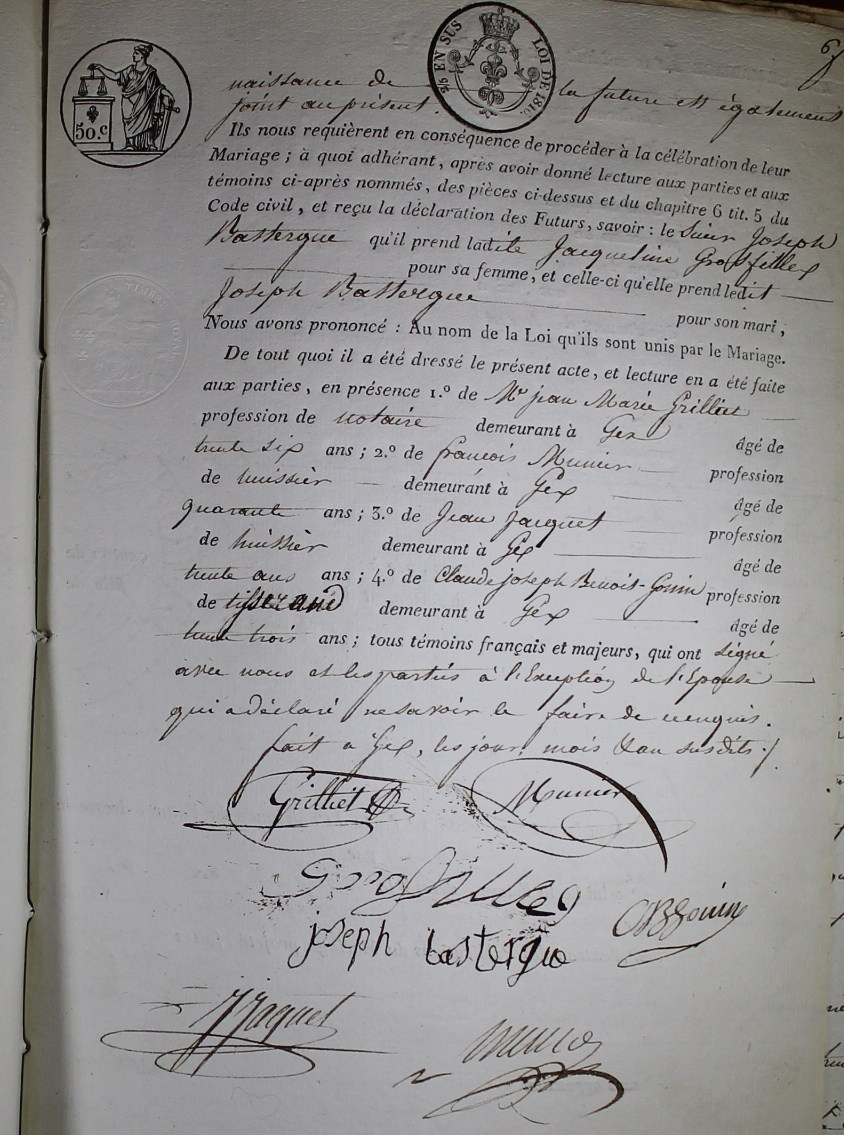 50.c
EN SUS LOI DE 1816.
naissance de la future est également
joint au présent.
Ils nous requièrent en conséquence de procéder à la célébration de leur
Mariage ; à quoi adhérant, après avoir donné lecture aux parties et aux
témoins ci-après nommés, des pièces ci-dessus et du chapitre 6 tit. 5 du
Code civil, et reçu la déclaration des Futurs, savoir : le Sieur Joseph
Bastergue qu'il prend ladite Jacqueline Grosfillex
pour sa femme, et celle-ci qu'elle prend ledit
Joseph Bastergue pour son mari,
Nous avons prononcé : Au nom de la Loi qu'ils sont unis par le Mariage.
De tout quoi il a été dressé le présent acte, et lecture en a été faite
aux parties, en présence 1.º de Mr jean Marie Grilliet
profession de notaire demeurant à Gex âgé de
trente six ans ; 2.º de françois Munier profession
de huissier demeurant à Gex âgé de
quarante ans ; 3.º de Jean Jacquet profession
de huissier demeurant à Gex âgé de
trente ans ans ; 4.º de Claude joseph Benoit-Gonin profession
de tisserand demeurant à Gex âgé de
trente trois ans ; tous témoins français et majeurs, qui ont signé
avec nous et les parties à l'Exception de l'Epouse
qui a déclaré ne savoir le faire de ce enquis.
fait a Gex, les jour, mois & an susdits ./.
Grilliet
Munier
Grosfillex
CBGonin
joseph bastergue
JJaquet